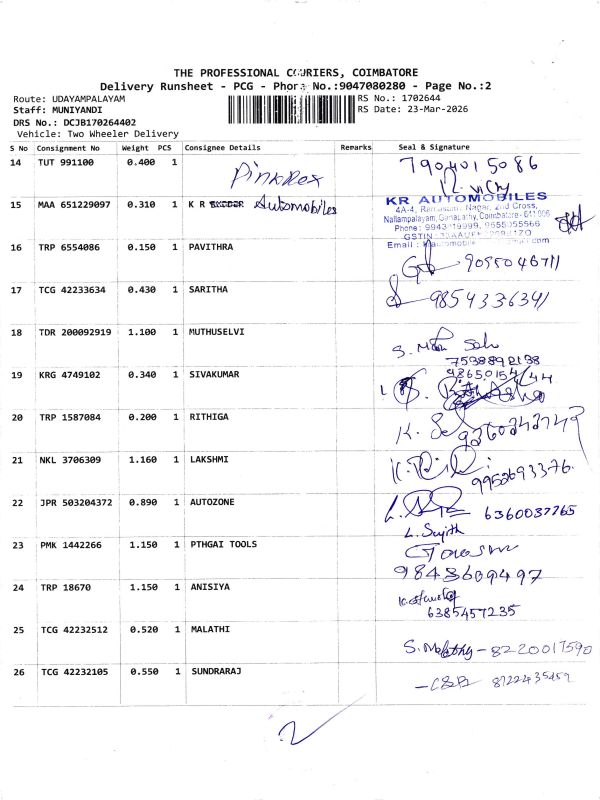 THE PROFESSIONAL COURIERS, COIMBATORE
Delivery Runsheet - PCG - Phone No.:9047080280 - Page No.:2
Route: UDAYAMPALAYAM
RS No.: 1702644
Staff: MUNIYANDI
RS Date: 23-Mar-2026
DRS No.: DCJB170264402
Vehicle: Two Wheeler Delivery
S No Consignment No Weight PCS Consignee Details Remarks Seal & Signature
14 TUT 991100 0.400 1 PinkRex 7904015086
15 MAA 651229097 0.310 1 K R Automobiles
KR AUTOMOBILES
4A-4, Nagar, 2nd Cross,
Nallampalayam, Ganapathy, Coimbatore-
Phone: 9655055566
GSTIN:
Email:
16 TRP 6554086 0.150 1 PAVITHRA
17 TCG 42233634 0.430 1 SARITHA 9854333634
18 TDR 200092919 1.100 1 MUTHUSELVI
7538892138
19 KRG 4749102 0.340 1 SIVAKUMAR
20 TRP 1587084 0.200 1 RITHIGA
21 NKL 3706309 1.160 1 LAKSHMI
9952693376
22 JPR 503204372 0.890 1 AUTOZONE 6360037765
L. Sujith
23 PMK 1442266 1.150 1 PTHGAI TOOLS
9843609497
24 TRP 18670 1.150 1 ANISIYA
6385457235
25 TCG 42232512 0.520 1 MALATHI S. Malathy - 8220017590
26 TCG 42232105 0.550 1 SUNDRARAJ
2